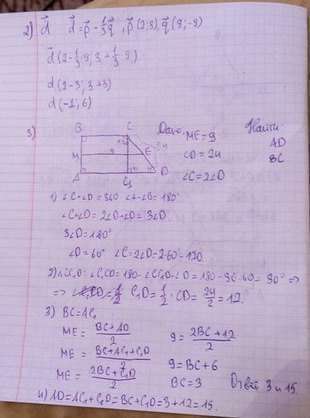 2) d⃗ d⃗ = p⃗ - 1/3 q⃗, p⃗(2;3), q⃗(9;-9)
d⃗(2-1/3·9; 3+1/3·9)
d(2-3; 3+3)
d(-1; 6)
3) Дано: Найти
B C ME = 9 AD
M 9 E 24 CD = 24 BC
A C₁ D ∠C=2∠D
1) ∠C+∠D = 360-∠A-∠B = 180°
∠C+∠D = 2∠D+∠D = 3∠D
3∠D = 180°
∠D = 60° ∠C = 2∠D = 2·60° = 120
2) ∠CC₁D: ∠C₁CD = 180-∠CC₁D-∠D = 180-90-60 = 30° ⇒
⇒ C₁D = 1/2 · CD = 24/2 = 12
3) BC = AC₁
ME = BC+AD/2 9 = 2BC+12/2
ME = BC+AC₁+C₁D/2 9 = BC+6
ME = 2BC+C₁D/2 BC = 3 Ответ 3 и 15.
4) AD = AC₁+C₁D = BC+C₁D = 3+12 = 15.